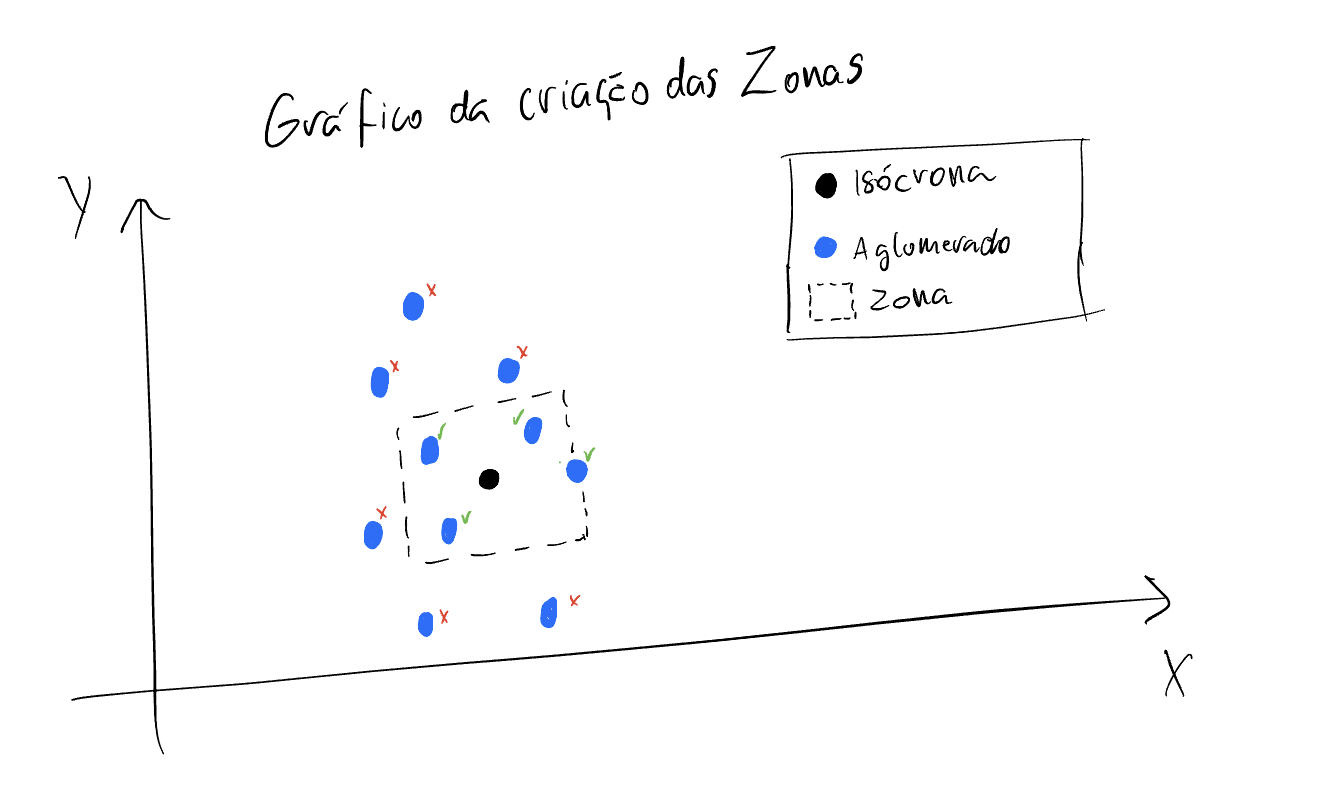 Gráfico da criação das Zonas
Y
Isócrona
Aglomerado
Zona
X